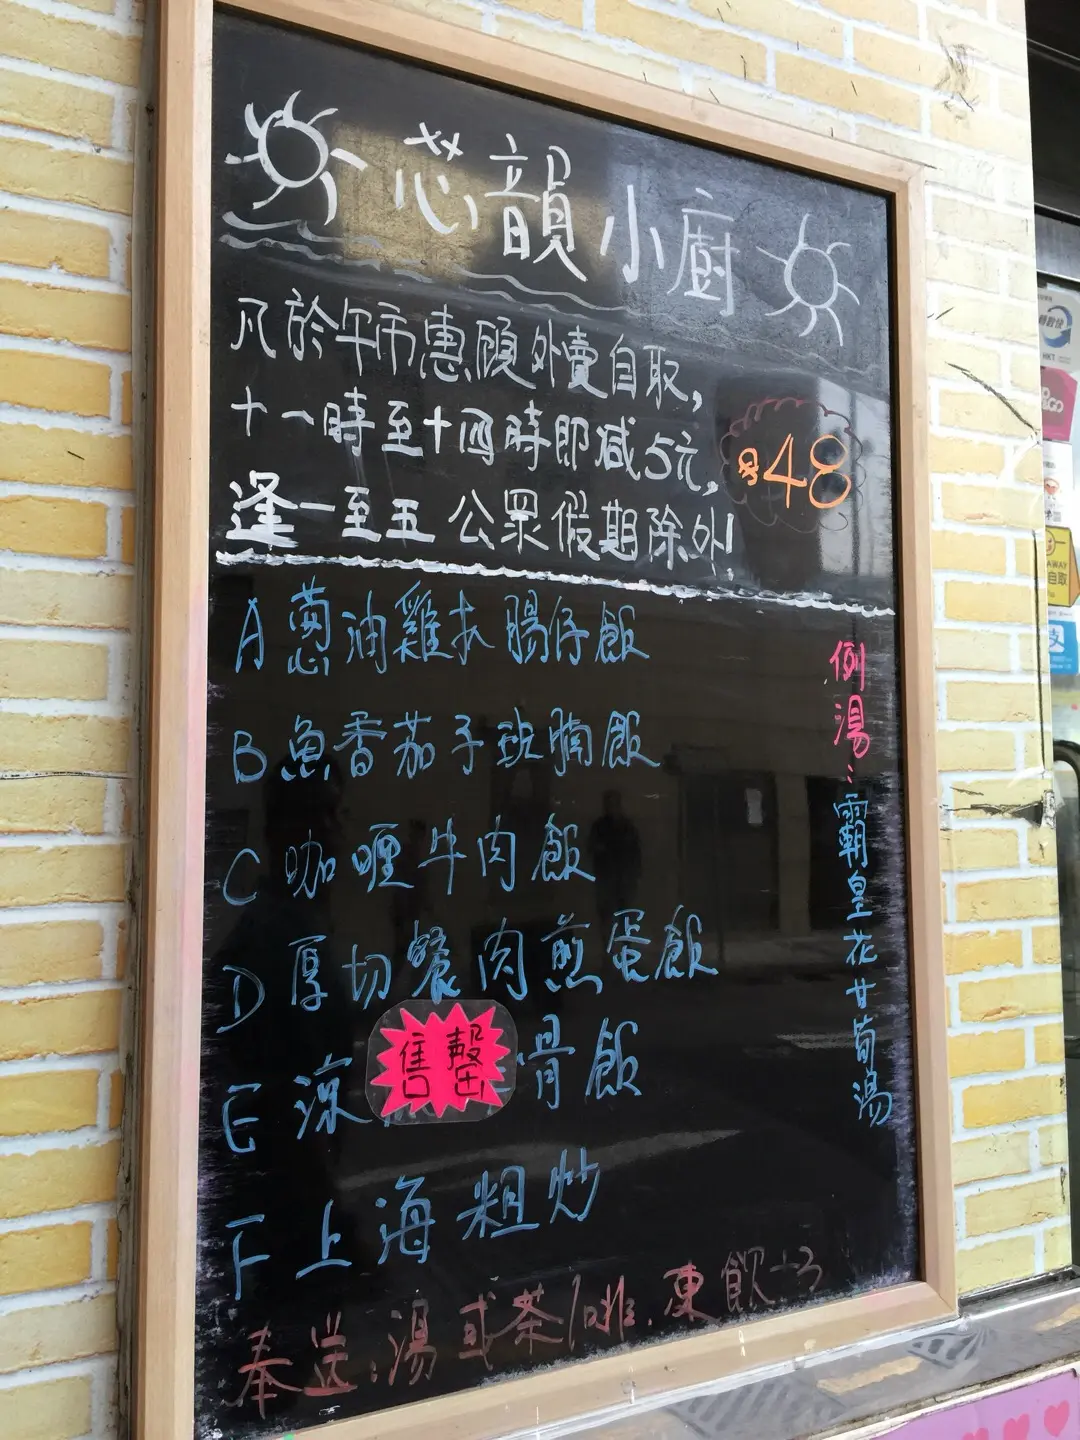 芯韻小廚
凡於午市惠顧外賣自取,
十一時至十四時即减5元,
逢一至五公眾假期除外!
$48
A 葱油雞扒腸仔飯
B 魚香茄子班腩飯
C 咖喱牛肉飯
D 厚切餐肉煎蛋飯
E 凉 骨飯
售罄
F 上海粗炒
奉送:湯或茶/啡.凍飲+3
例湯:霸皇花甘筍湯
自取